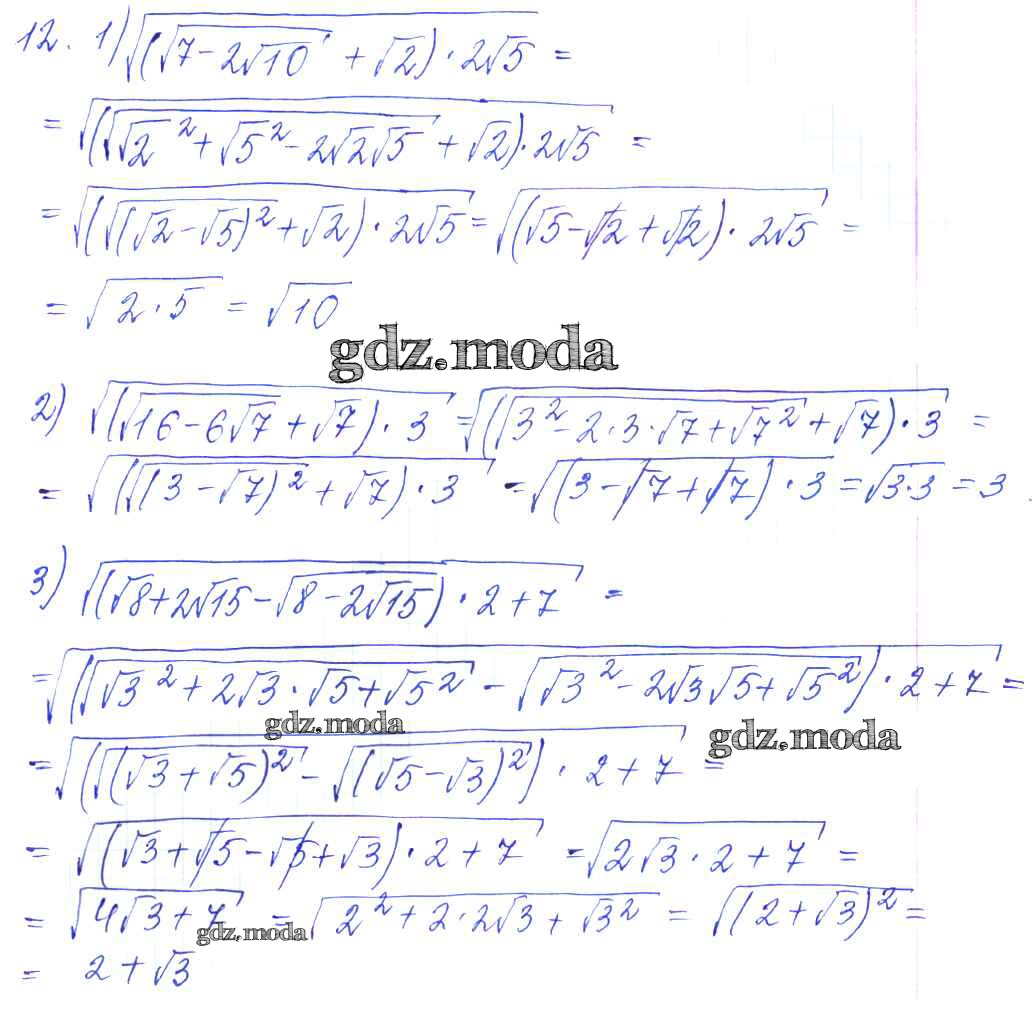 12. 1) √((√(7-2√10) + √2) · 2√5) =
= √((√(√2² + √5² - 2√2√5) + √2) · 2√5) =
= √((√((√2 - √5)²) + √2) · 2√5) = √((√5 - √2 + √2) · 2√5) =
= √(2 · 5) = √10
gdz.moda
2) √((√(16 - 6√7) + √7) · 3) = √((√(3² - 2 · 3 · √7 + √7²) + √7) · 3) =
= √((√((3 - √7)²) + √7) · 3) = √((3 - √7 + √7) · 3) = √(3·3) = 3.
3) √((√(8 + 2√15) - √(8 - 2√15)) · 2 + 7) =
= √((√(√3² + 2√3 · √5 + √5²) - √(√3² - 2√3√5 + √5²)) · 2 + 7) =
gdz.moda gdz.moda
= √((√((√3 + √5)²) - √((√5 - √3)²)) · 2 + 7) =
= √((√3 + √5 - √5 + √3) · 2 + 7) = √(2√3 · 2 + 7) =
= √(4√3 + 7) = √(2² + 2 · 2√3 + √3²) = √((2 + √3)²) =
gdz.moda
= 2 + √3